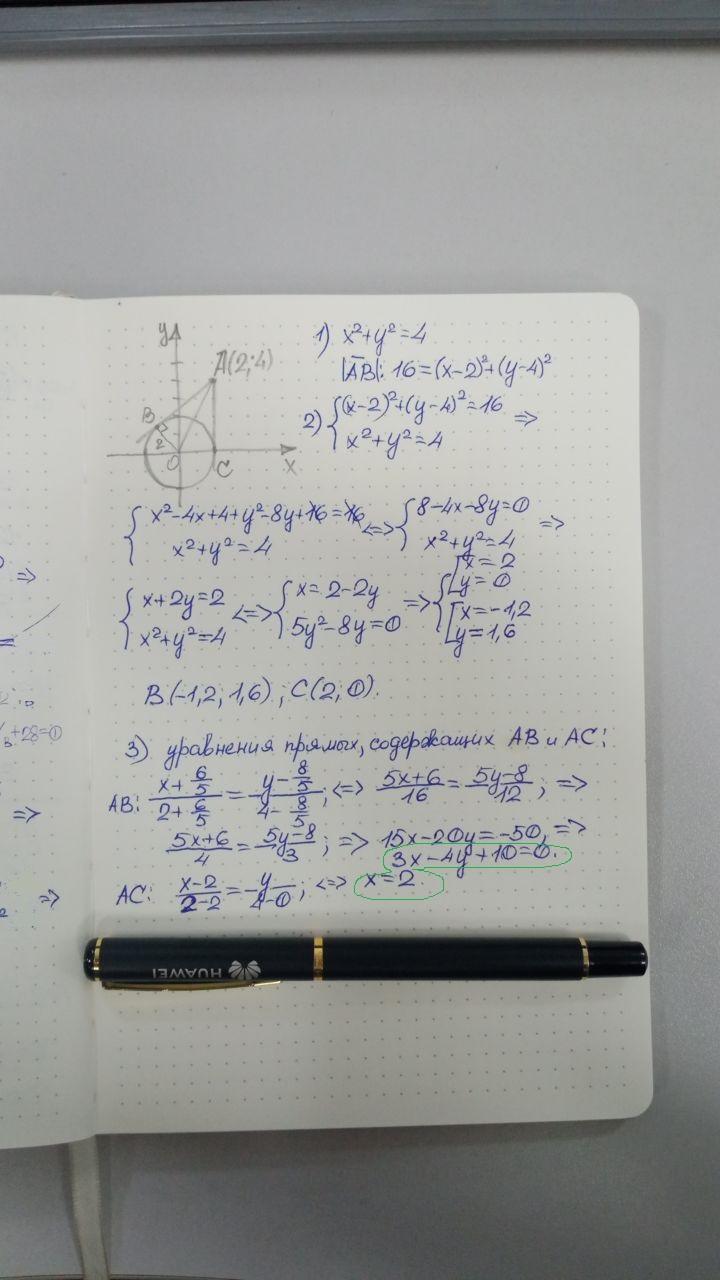 y
A(2;4)
B
2
O
C
x
1) x²+y²=4
|AB|: 16=(x-2)²+(y-4)²
2) {(x-2)²+(y-4)²=16
x²+y²=4 =>
{x²-4x+4+y²-8y+16=16
x²+y²=4 <=> {8-4x-8y=0
x²+y²=4 =>
{x+2y=2
x²+y²=4 <=> {x=2-2y
5y²-8y=0 => {[x=2
y=0
[x=-1,2
y=1,6
B(-1,2, 1,6), C(2,0).
3) уравнения прямых, содержащих AB и AC:
AB: (x+6/5)/(2+6/5)=(y-8/5)/(4-8/5); <=> (5x+6)/16=(5y-8)/12; =>
(5x+6)/4=(5y-8)/3; => 15x-20y=-50, =>
3x-4y+10=0.
AC: (x-2)/(2-2)=y/(4-0); <=> x=2
HUAWEI
=>
+28=0
=>
2
=>